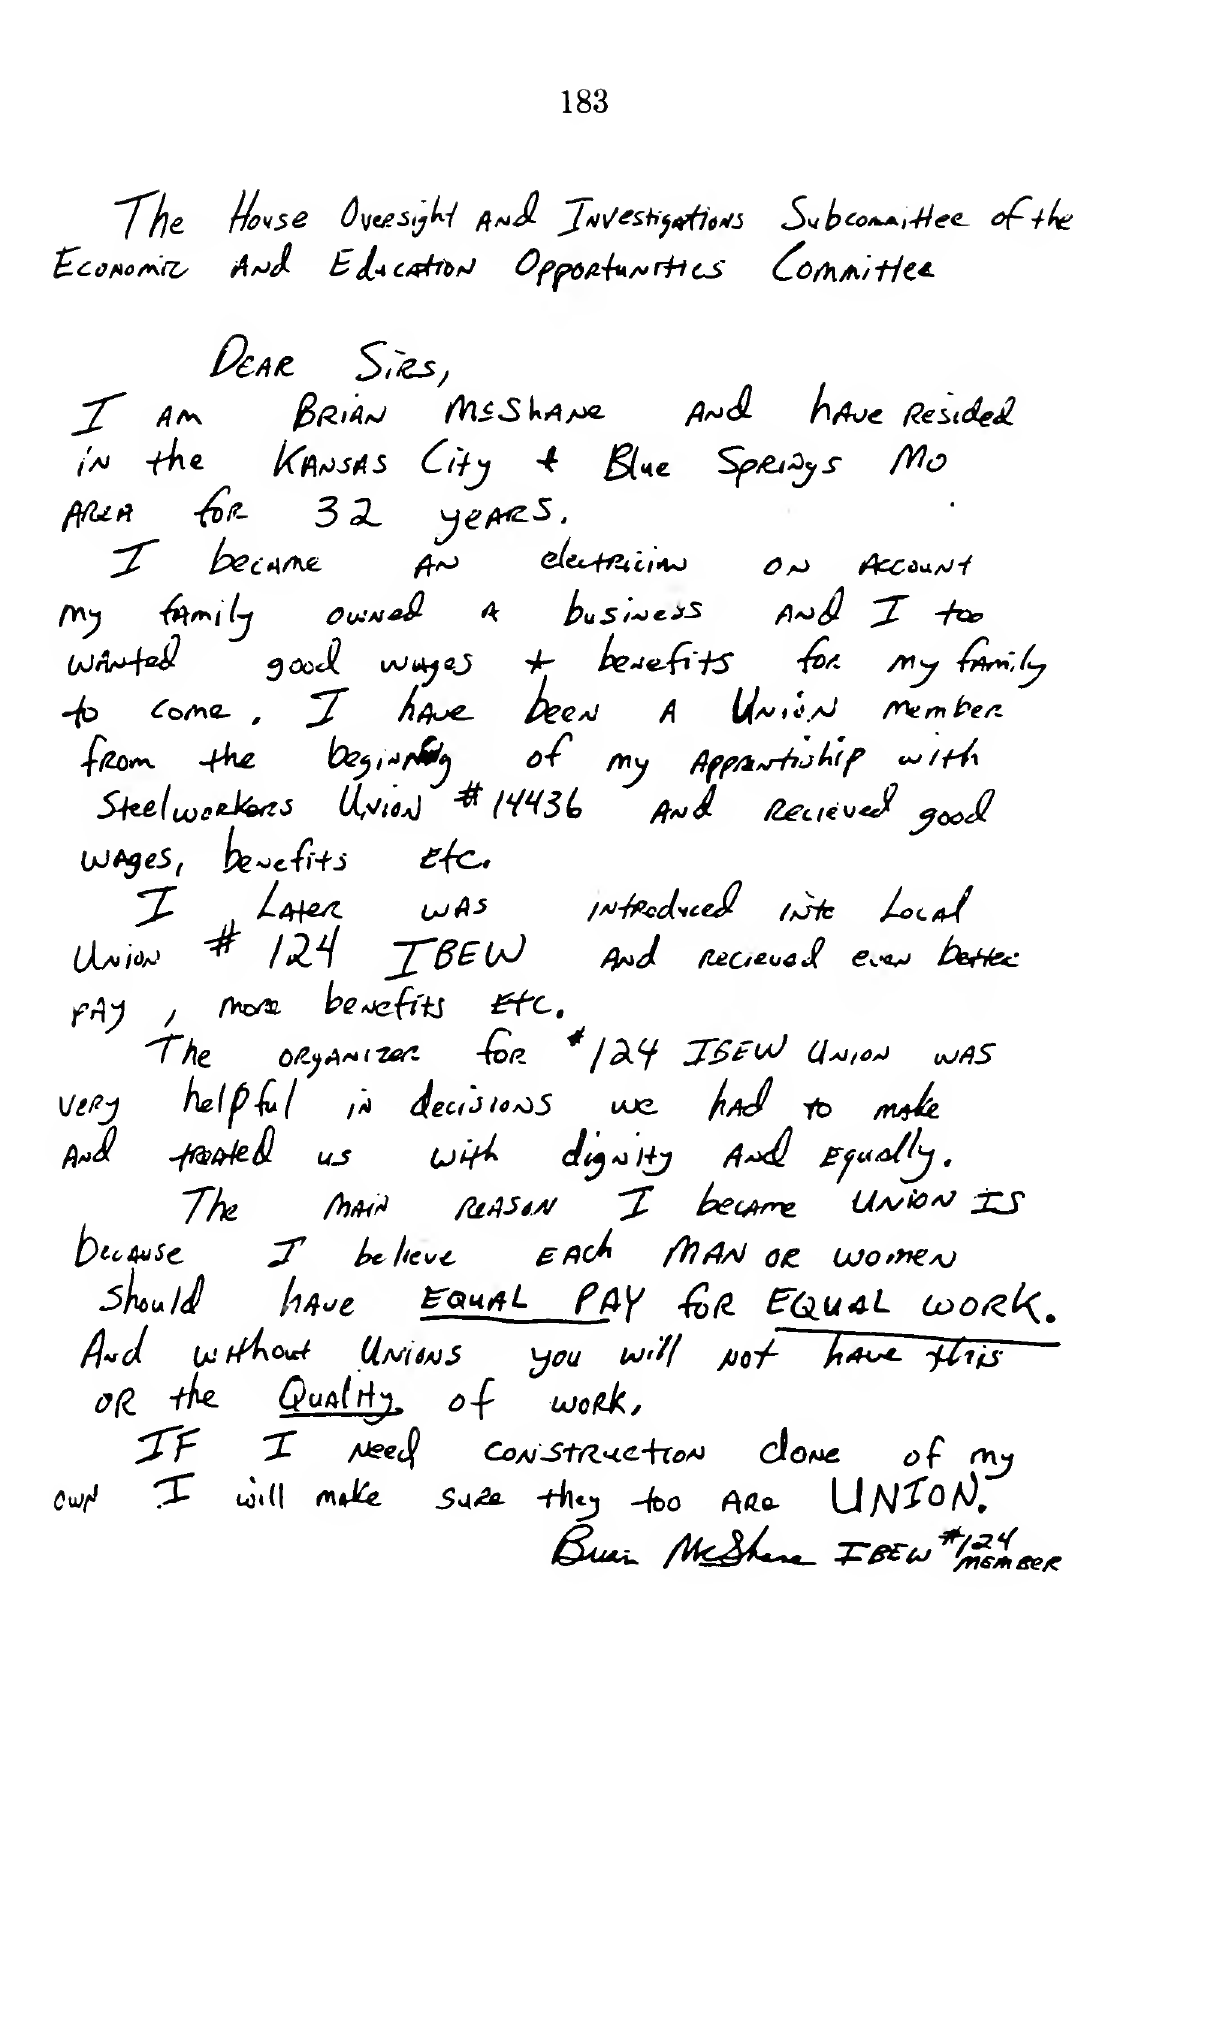 183
The House Oversight and Investigations Subcommittee of the
Economic and Education Opportunities Committee
Dear Sirs,
I am Brian McShane and have resided
in the Kansas City + Blue Springs Mo
area for 32 years.
I became an electrician on account
my family owned a business and I too
wanted good wages + benefits for my family
to come. I have been a Union member
from the beginning of my apprentiship with
Steelworkers Union #14436 and recieved good
wages, benefits etc.
I later was introduced into Local
Union # 124 IBEW and recieved even better
pay, more benefits etc.
The organizer for #124 IBEW Union was
very helpful in decisions we had to make
and treated us with dignity and equally.
The main reason I became union is
because I believe each man or women
should have EQUAL PAY for EQUAL WORK.
And without unions you will not have this
or the Quality of work.
If I need construction done of my
own I will make sure they too are UNION.
Brian McShane IBEW #124
MEMBER